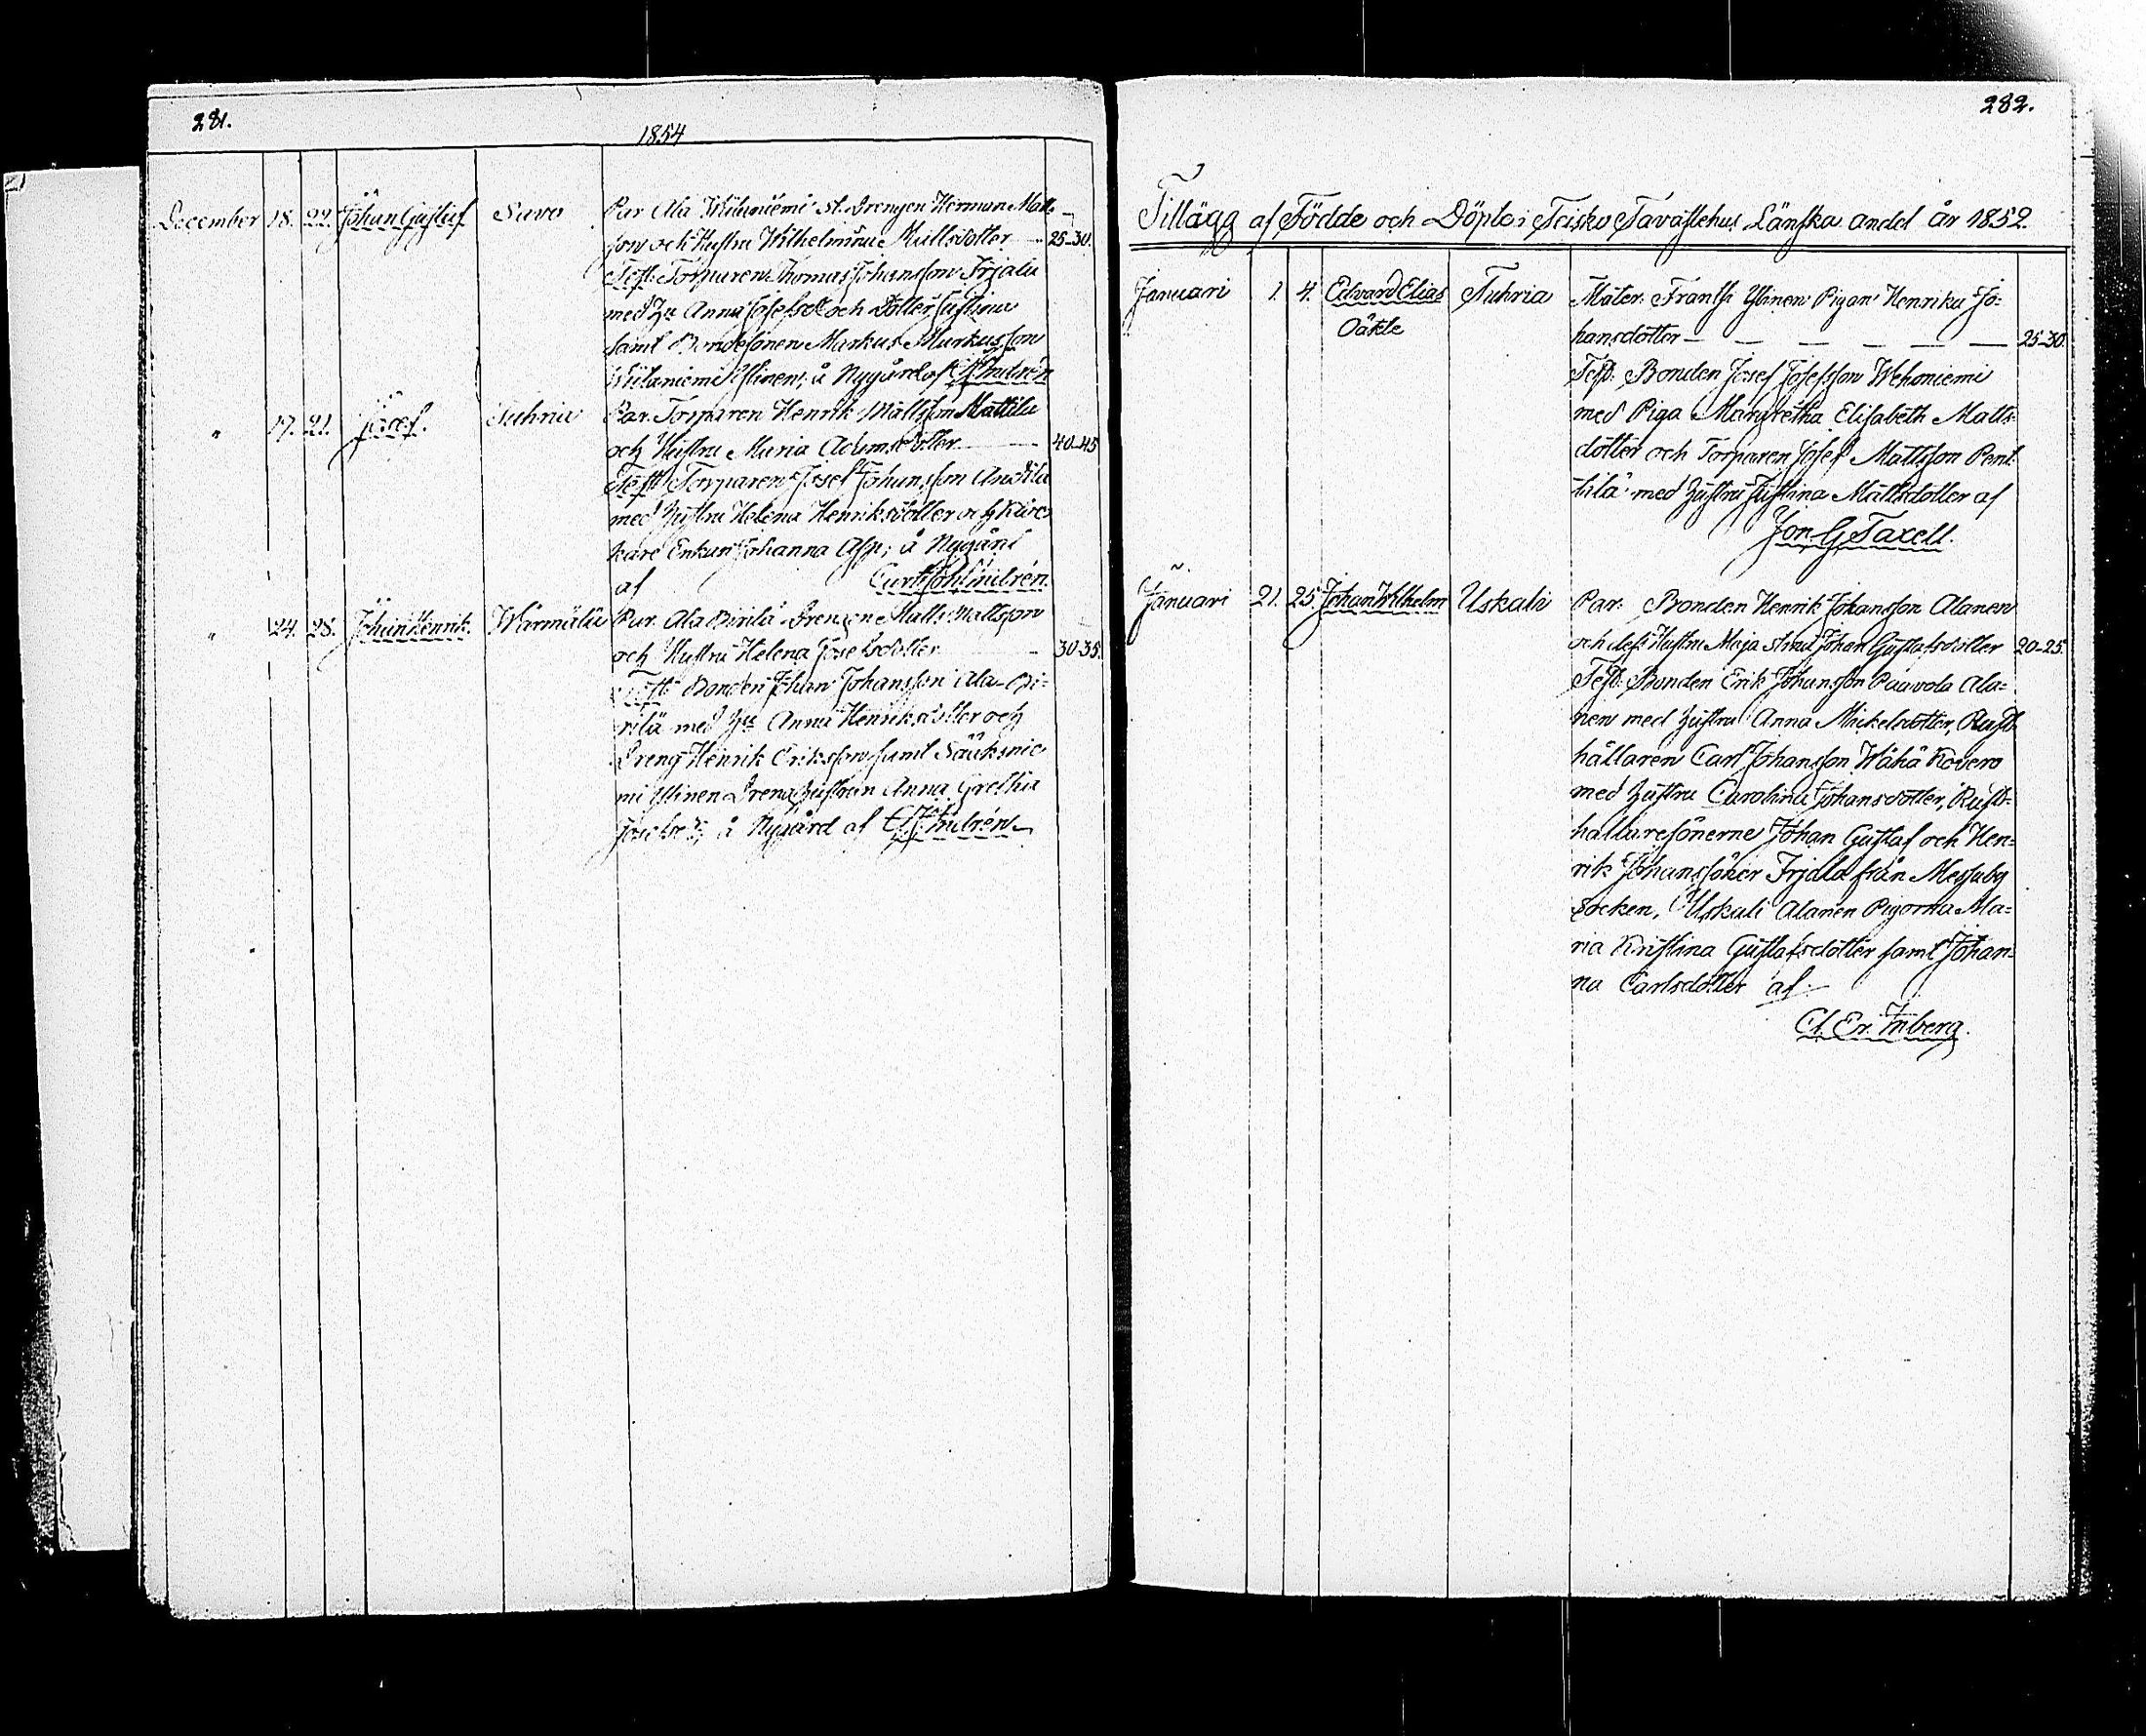 281.
1854
December 18. 22. Johan Gustaf Savo Par Ala Wiitaniemi st. Drengen Herman Matts-
son och Hustru Wilhelmina Mattsdotter 25-30.
Test: Torparen Thomas Johansson Irjala
med Hu Anna Josefsd och Dotter Justina
samt Bondesonen Markus Markusson
Wiitaniemi Ylinen; å Nygård af
" 17. 21. Josef. Tuhria Par. Torparen Henrik Mattsson Mattila
och Hustru Maria Adamsdotter 40-45
Test: Torparen Josef Johansson Anttila
med Hustru Helena Henriksdotter och
Enkan Johanna Asp; å Nygård
af
" 24. 28. Johan Henrik. Wärmälä Par. Ala Pirilä Drengen Matts Mattsson
och Hustru Helena Josefsdotter 30-35.
Test: Bonden Johan Johansson Ala-Pi-
rilä med Hu Anna Henriksdotter och
Dreng Henrik Eriksson samt Sääksnie
mi Ylinen Drenghustrun Anna Gretha
å Nygård af
282.
Tillägg af Födde och Döpte i Teisko Tavastehus Länska andel år 1852.
Januari 1. 4. Edvard Elias Tuhria Mater: Frantsi Ylinen Pigan Henrika Jo-
Oäkte hansdotter — — — — — — 25-30.
Test: Bonden Josef Josefsson Wehoniemi
med Piga Margretha Elisabeth Matts-
dotter och Torparen Josef Mattsson Pent-
tilä med Hustru Justina Mattsdotter af
Jon. G Taxell.
Januari 21. 25. Johan Wilhelm Uskali Par: Bonden Henrik Johansson Alanen
och dess Hustru Maja Stina Johan Gustafsdotter 20-25.
Test: Bonden Erik Johansson Paavola Ala-
nen med Hustru Anna Mickelsdotter, Rust-
hållaren Carl Johansson Wähä Kovero
med Hustru Carolina Johansdotter, Rust-
hållaresönerne Johan Gustaf och Hen-
rik Johanssöner Irjala från Messuby
Socken, Uskali Alanen Pigorna Ma-
ria Kristina Gustafsdotter samt Johan-
na Carlsdotter af
Cl. Er. Inberg.